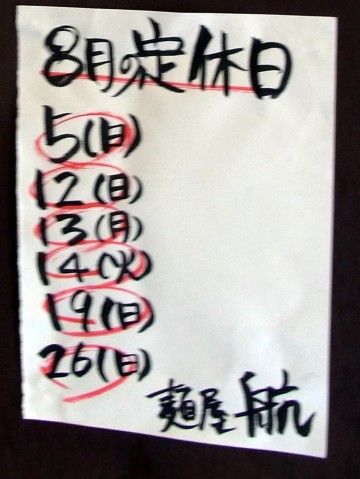 8月の定休日
5(日)
12(日)
13(月)
14(火)
19(日)
26(日)
麺屋 航